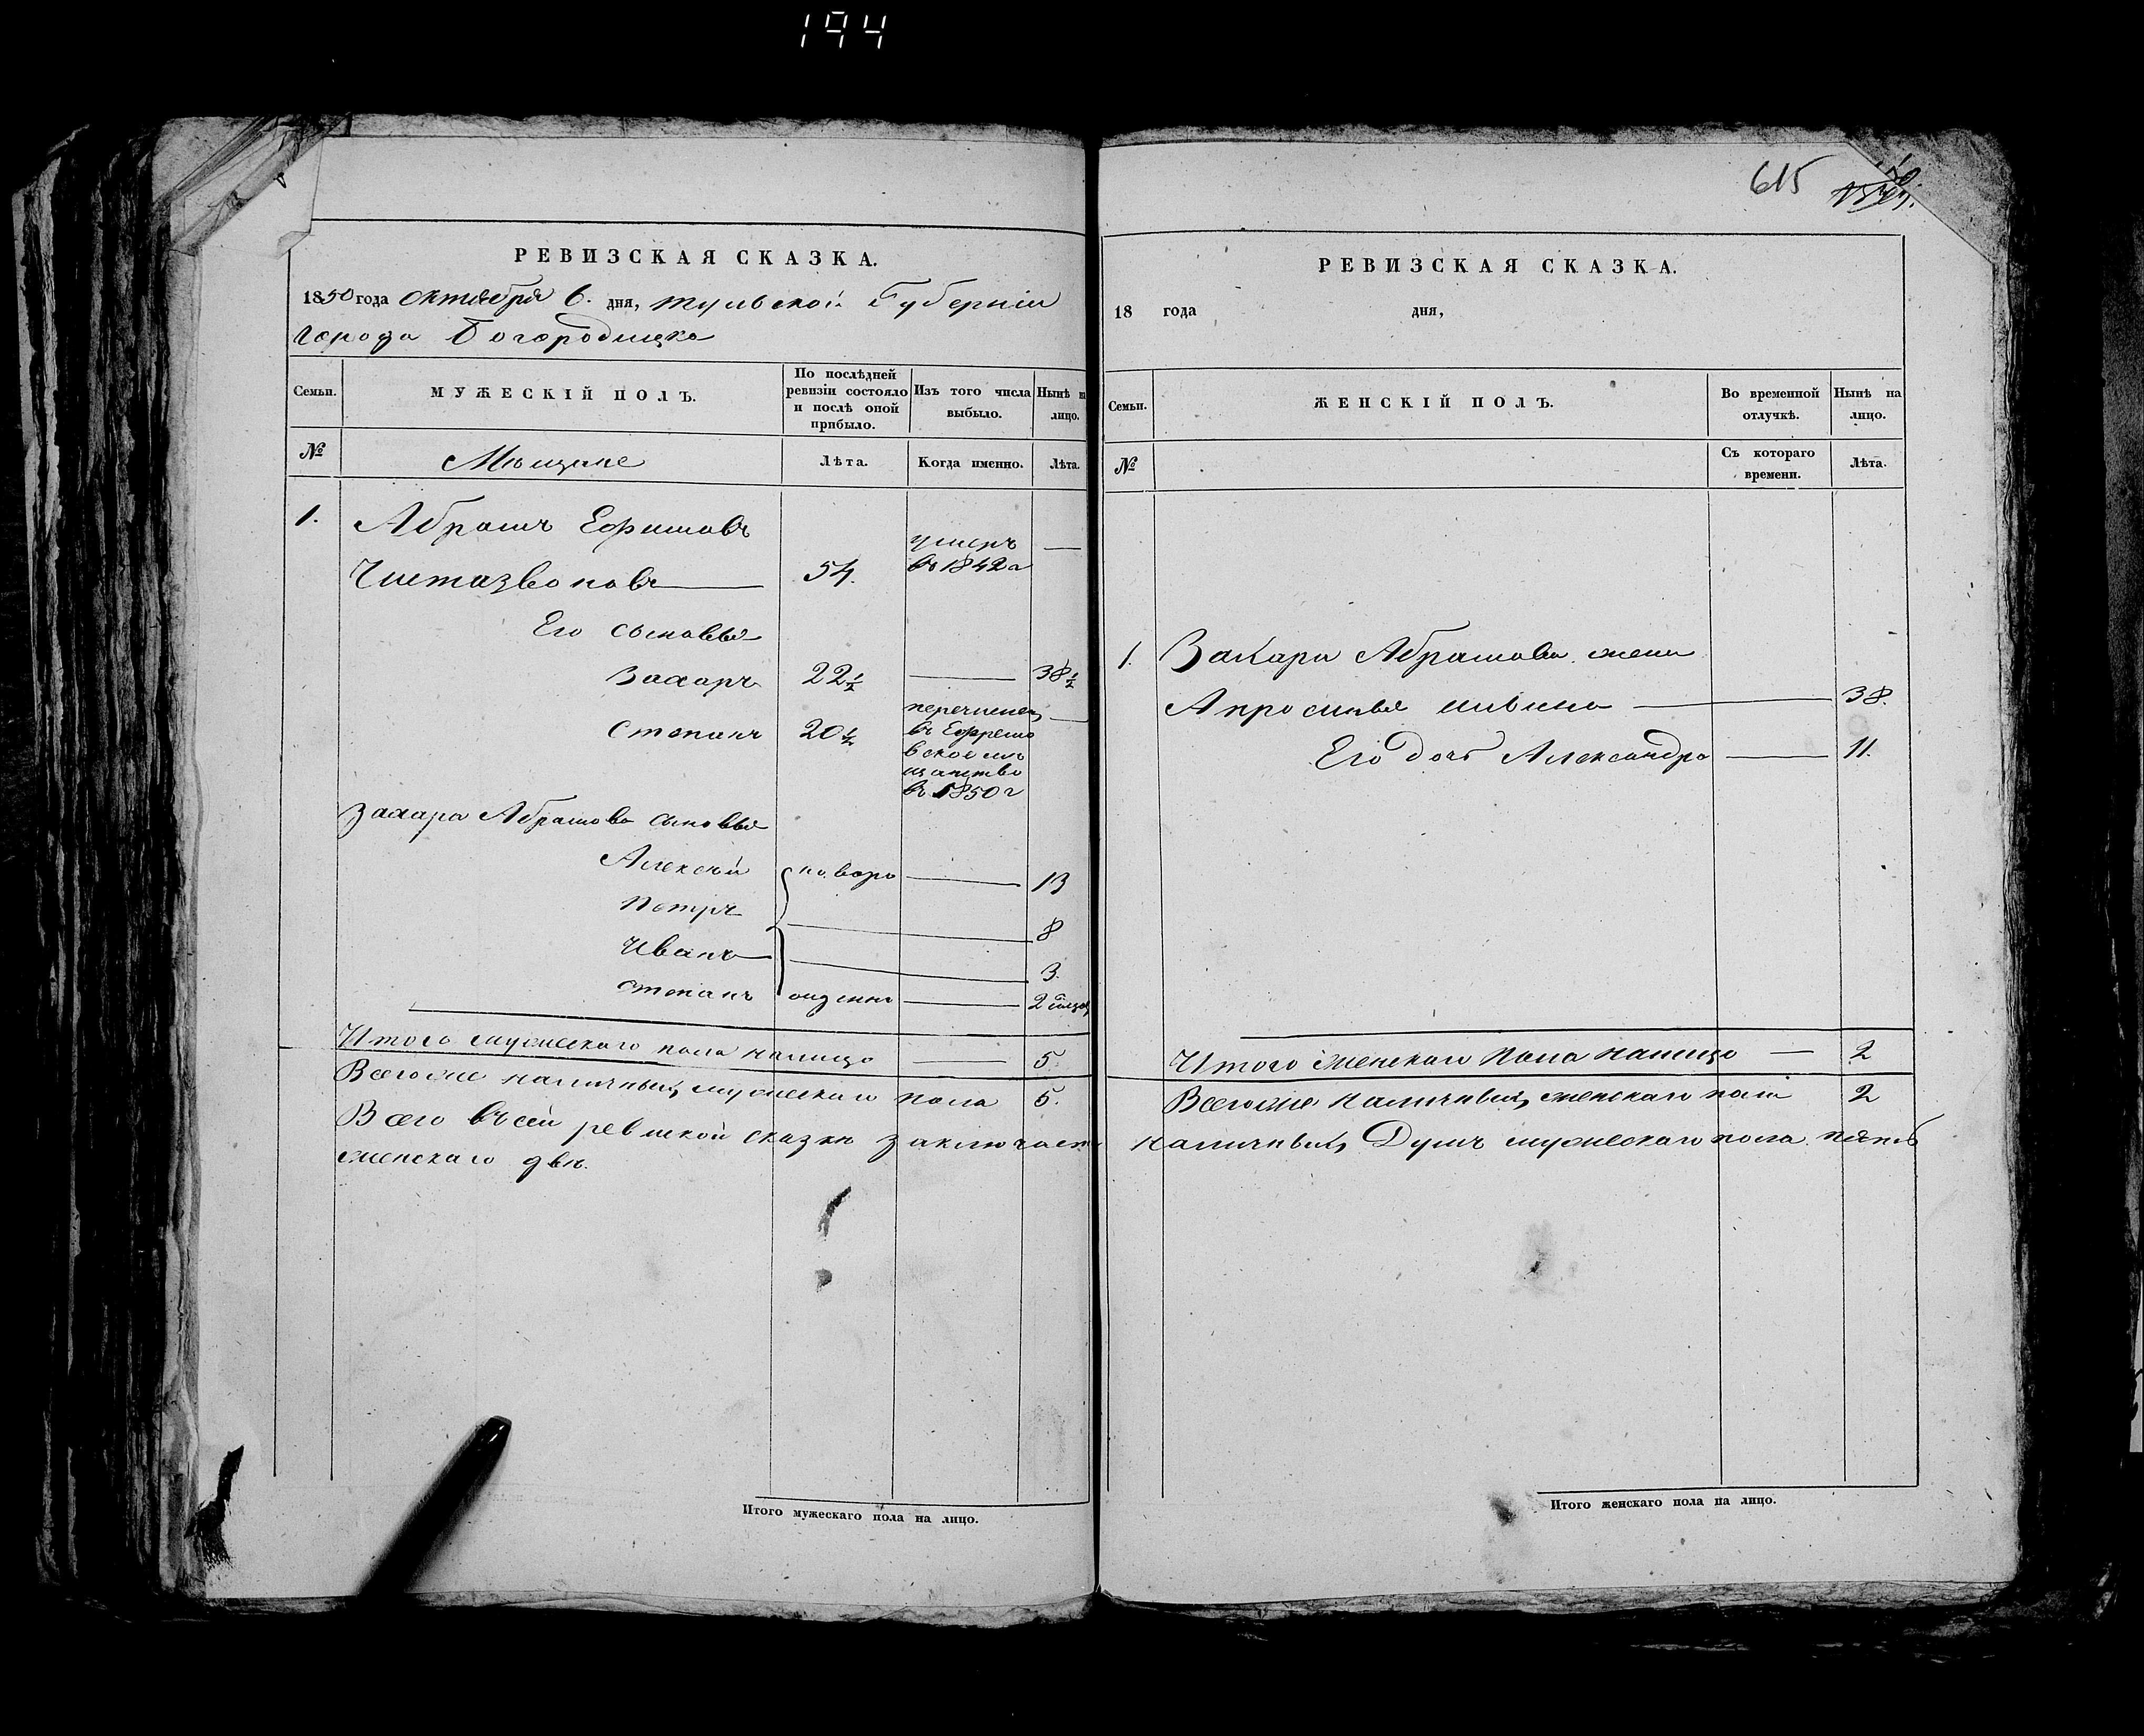 194
РЕВИЗСКАЯ СКАЗКА.
1850 года октября 6. дня, тульской Губерніи
города Богородицка
Семьи.
МУЖЕСКІЙ ПОЛЪ.
По послѣдней ревизіи состояло и послѣ оной прибыло.
Изъ того числа выбыло.
Нынѣ на лицо.
№
Мѣщане
Лѣта.
Когда именно.
Лѣта.
1.
Абрамъ Ефимовъ
умеръ
Чистазвоновъ
54.
въ 1842 г
Его сыновья
Захаръ
22½
38½
Степанъ
20½
перечислен
въ Ефремо
вское мѣ
щанство
въ 1850 г
Захара Абрамова сыновья
Алексѣй
новоро
13
Петръ
8
Иванъ
3.
Степанъ
2
Итого мужескаго пола налицо
5.
Всегоже наличныхъ мужескаго пола
5.
Всего въсей ревиской сказки заключает
женскаго двѣ.
Итого мужескаго пола на лицо.
615
РЕВИЗСКАЯ СКАЗКА.
18 года дня,
Семьи.
ЖЕНСКІЙ ПОЛЪ.
Во временной отлучкѣ.
Нынѣ на лицо.
№
Съ котораго времени.
Лѣта.
1. Захара Абрамова жена
Апросинья
38.
Его дочь Александра
11.
Итого женскаго пола налицо
2
Всегоже наличныхъ женскаго пола
2
наличныхъ Душъ мужескаго пола пять
Итого женскаго пола на лицо.